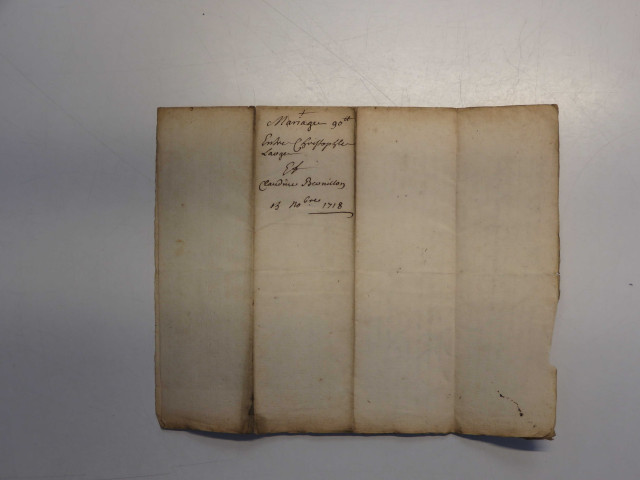 Mariage 90tt
Entre Christophle
Lange
Et
Claudine
13 no bre 1718